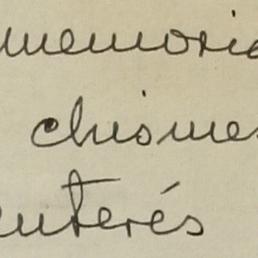 memoria
chismes
interés